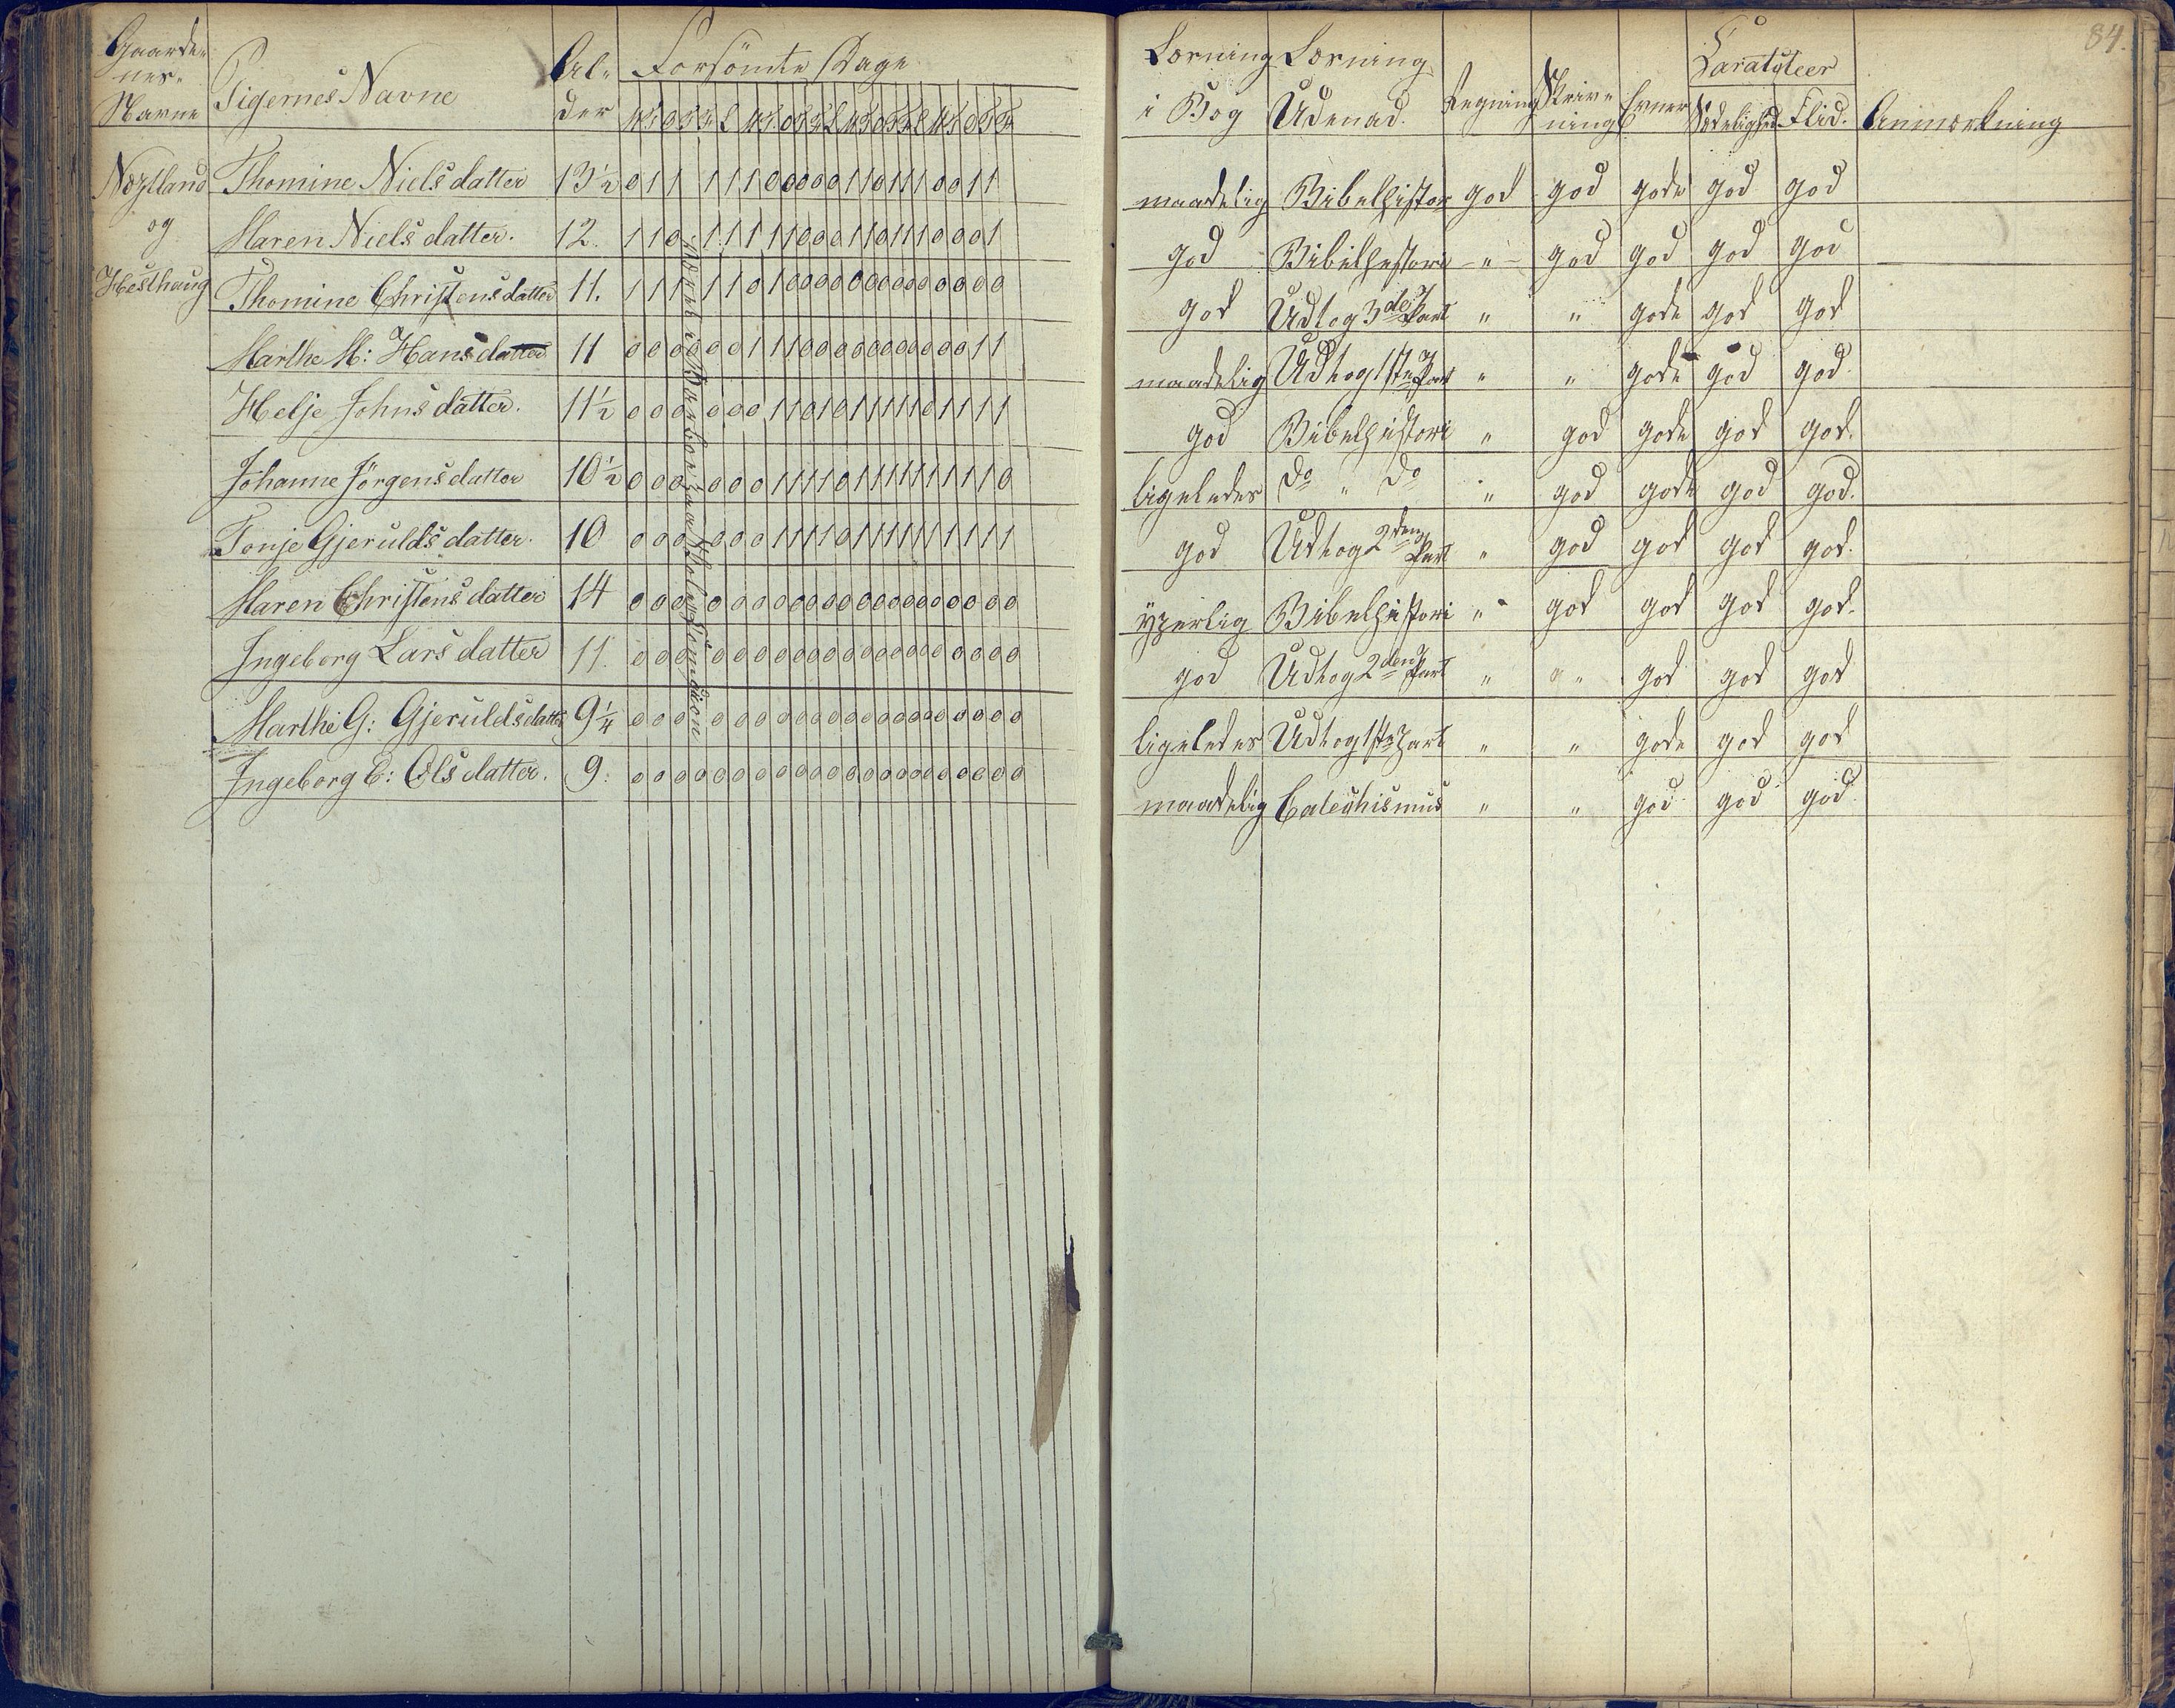 84.
Gaarde-
nes-
Navne
Pigernes Navne
Al-
der
Forsömte Dage
Lærning
i Bog
Lærning
Udenad.
Regning
Skriv-
ning
Evner
Caracteer
Sædelighed
Flid.
Anmærkning
og
Hesthaug
Thomine Niels datter 13½ 0 1 1 1 1 1 0 0 0 0 0 1 1 0 1 1 1 0 0 1 1 maadelig Bibelhistor god god gode god god
Maren Niels datter. 12. 1 1 0 1 1 1 1 1 0 0 0 1 1 0 1 1 1 0 0 0 1 god Bibelhistori - " - god god god god
Thomine Christens datter 11. 1 1 1 1 1 0 1 0 0 0 0 0 0 0 0 0 0 0 0 0 0 god Udtog 3die Part " " gode god god
Marthe M: Hans datter 11 0 0 0 0 0 0 1 1 1 0 0 0 0 0 0 0 0 0 0 0 1 1 maadelig Udtog 1ste Part " " gode god god.
Helje Johns datter. 11½ 0 0 0 0 0 0 1 1 0 1 0 1 1 1 1 1 0 1 1 1 1 god Bibelhistori " god gode god god.
Johanne Jörgens datter 10½ 0 0 0 0 0 0 1 1 1 1 0 1 1 1 1 1 1 1 1 1 0 ligeledes do " do " god gode god god.
Tonje Gjerulds datter. 10 0 0 0 0 0 0 1 1 1 1 0 1 1 1 1 1 1 1 1 1 1 god Udtog 2den Part " god god god god.
Maren Christens datter 14 0 0 0 0 0 0 0 0 0 0 0 0 0 0 0 0 0 0 0 0 0 yperlig Bibelhistori " god god god god.
Ingeborg Lars datter 11. 0 0 0 0 0 0 0 0 0 0 0 0 0 0 0 0 0 0 0 0 0 god Udtog 2den Part " " god god god
Marthe G: Gjerulds datter 9¼ 0 0 0 0 0 0 0 0 0 0 0 0 0 0 0 0 0 0 0 0 0 ligeledes Udtog 1ste Part " " gode god god
Ingeborg E: Ols datter. 9. 0 0 0 0 0 0 0 0 0 0 0 0 0 0 0 0 0 0 0 0 0 0 maadelig Catechismus " " god god god